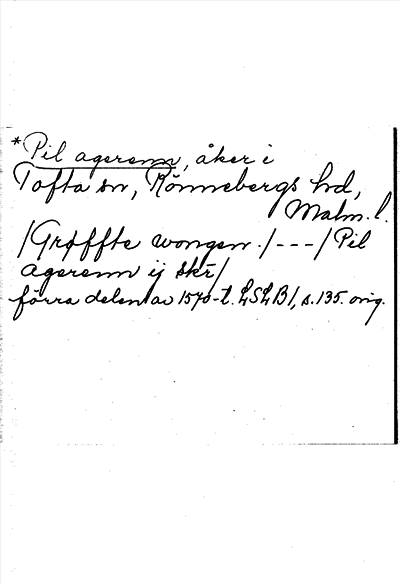 *Pil agerenn, åker i
Tofta sn, Rönnebergs hd,
Malm. l.
/Grøffte wongen./---/Pil
agerenn ij skr/
förra delen av 1570-t. LSLB1, s.135. orig.